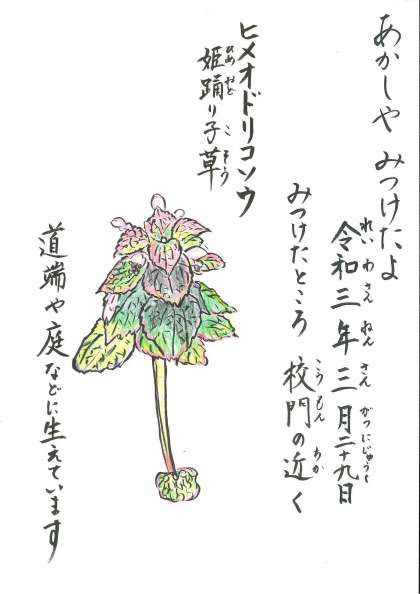 あかしや みつけたよ
令和三年三月二十九日
れいわさんねんさんがつにじゅうく
みつけたところ 校門の近く
こうもん ちか
ヒメオドリコソウ
姫踊り子草
ひめおど こそう
道端や庭などに生えています